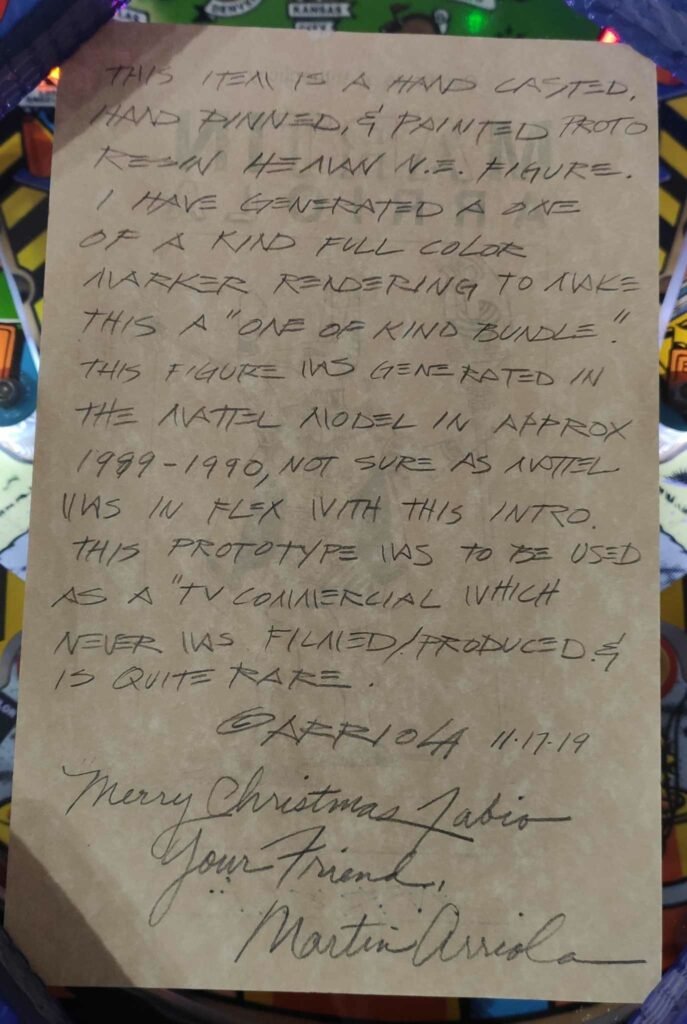 KANSAS
THIS ITEM IS A HAND CASTED,
HAND PINNED, & PAINTED PROTO
RESIN HEMAN N.E. FIGURE.
I HAVE GENERATED A ONE
OF A KIND FULL COLOR
MARKER RENDERING TO MAKE
THIS A "ONE OF KIND BUNDLE".
THIS FIGURE WAS GENERATED IN
THE MATTEL MODEL IN APPROX
1989-1990, NOT SURE AS MATTEL
WAS IN FLEX WITH THIS INTRO.
THIS PROTOTYPE WAS TO BE USED
AS A "TV COMMERCIAL WHICH
NEVER WAS FILMED/PRODUCED &
IS QUITE RARE.
©ARRIOLA 11.17.19
Merry Christmas Fabio
Your Friend,
Martin Arriola